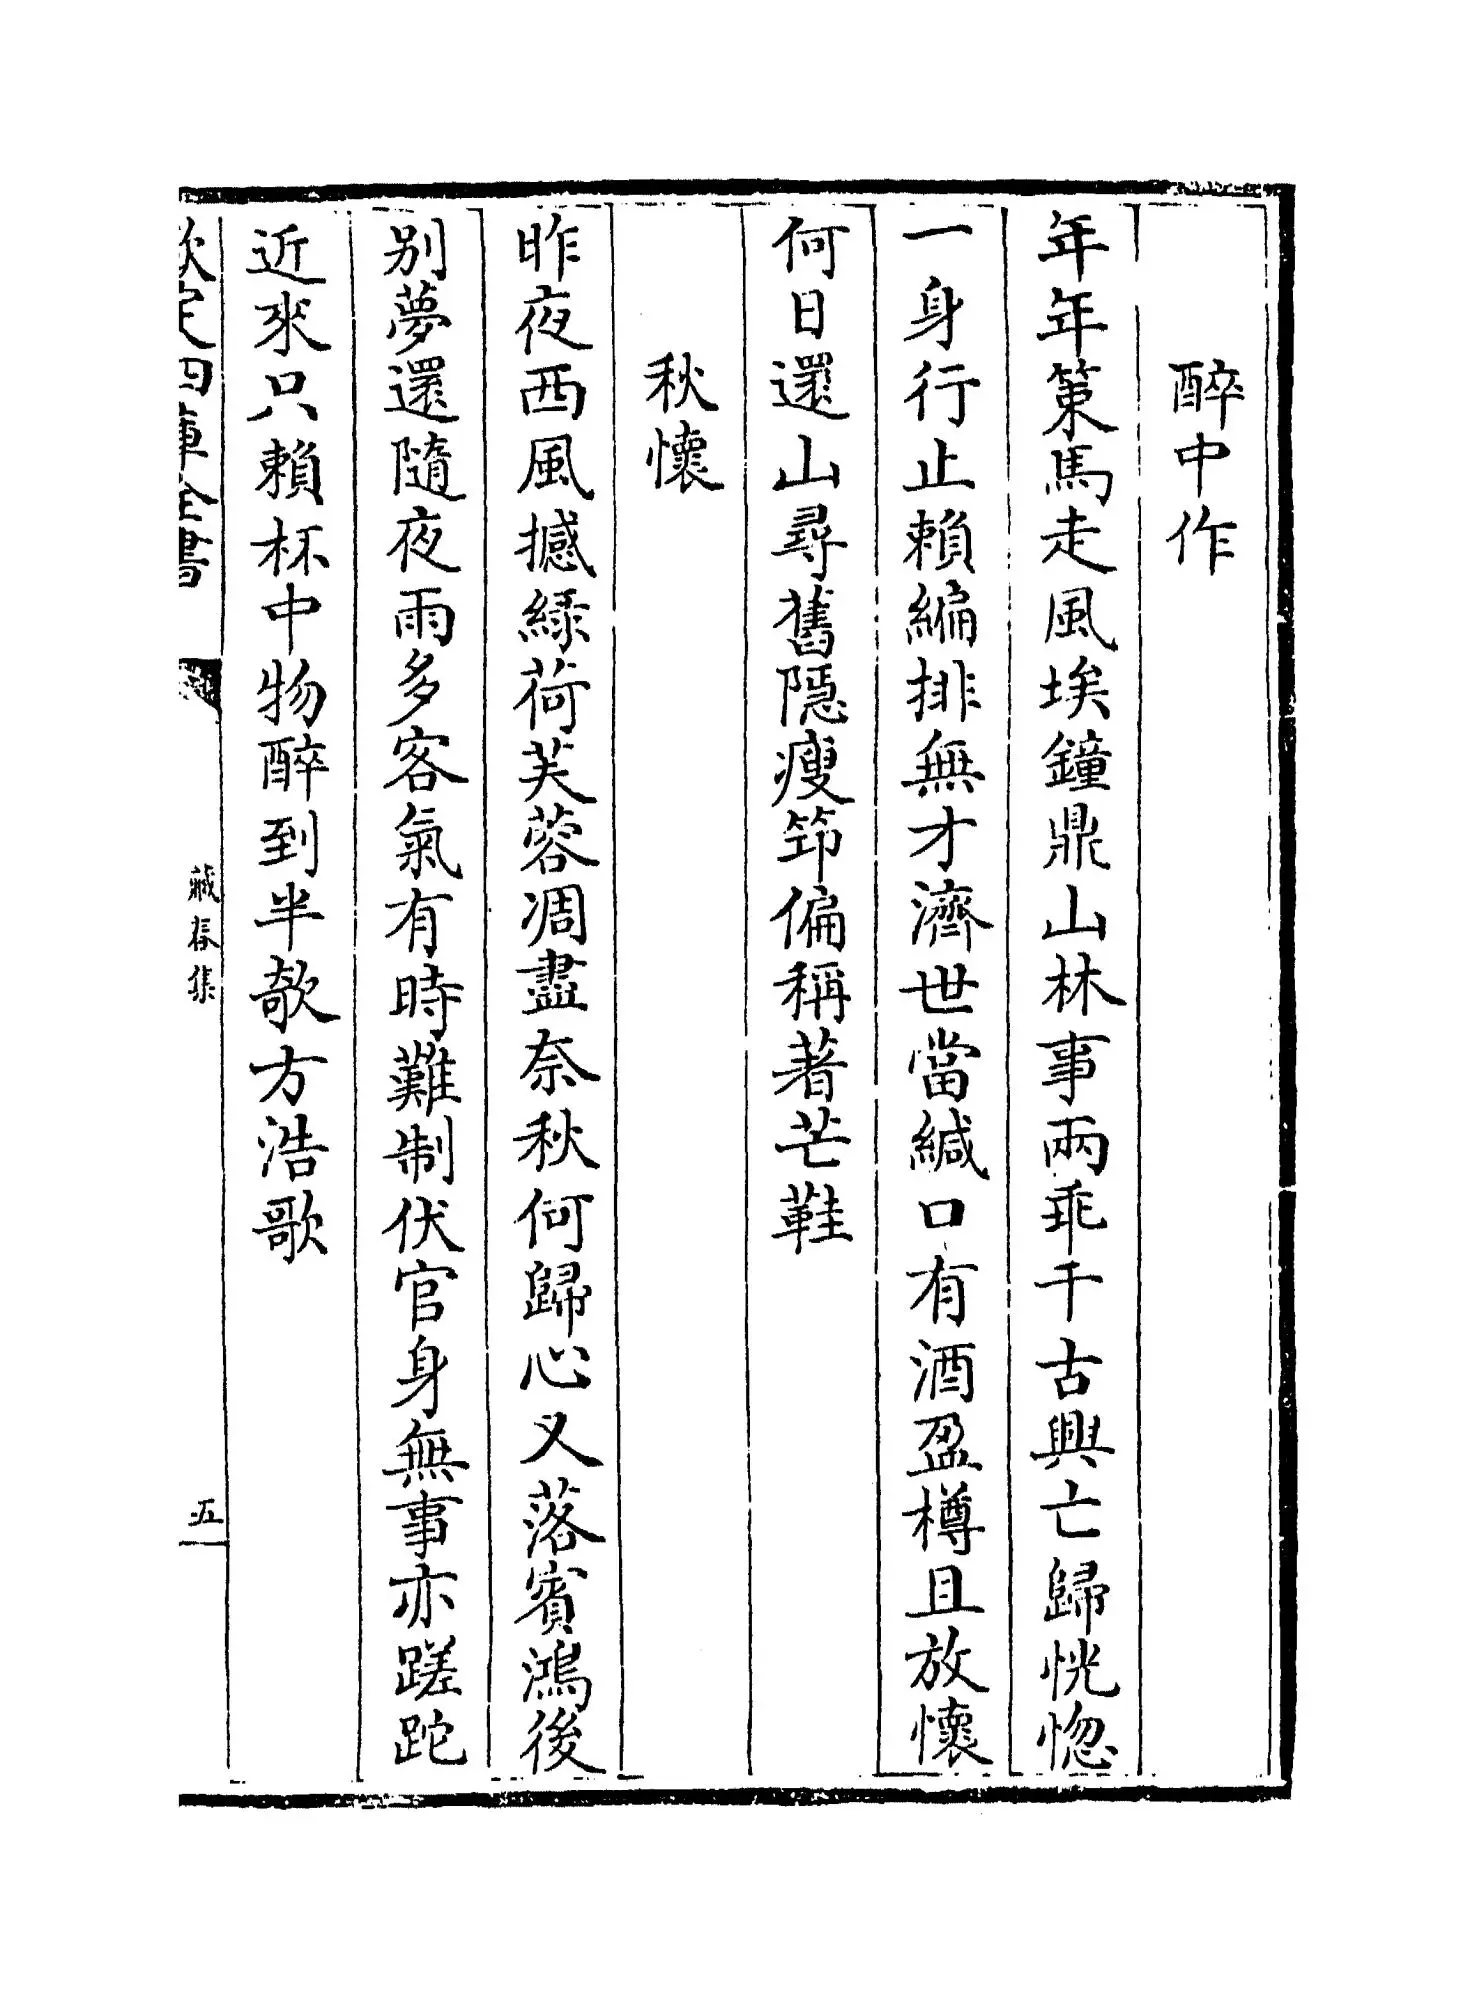 醉中作
年年策馬走風埃鐘鼎山林事兩乖千古興亡歸恍惚
一身行止賴編排無才濟世當緘口有酒盈樽且放懷
何日還山尋舊隱瘦筇偏稱著芒鞋
秋懷
昨夜西風撼緑荷芙蓉凋盡奈秋何歸心又落賓鴻後
别夢還隨夜雨多客氣有時難制伏官身無事亦蹉跎
近來只賴杯中物醉到半欹方浩歌
欽定四庫全書
藏春集
五